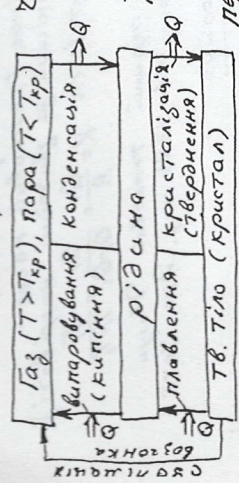 Газ (T > Tкр), пара (T < Tкр)
випаровування
(кипіння)
конденсація
Q
рідина
плавлення
кристалізація
(твердення)
Q
Q
Q
тв. тіло (кристал)
сублімація
возгонка